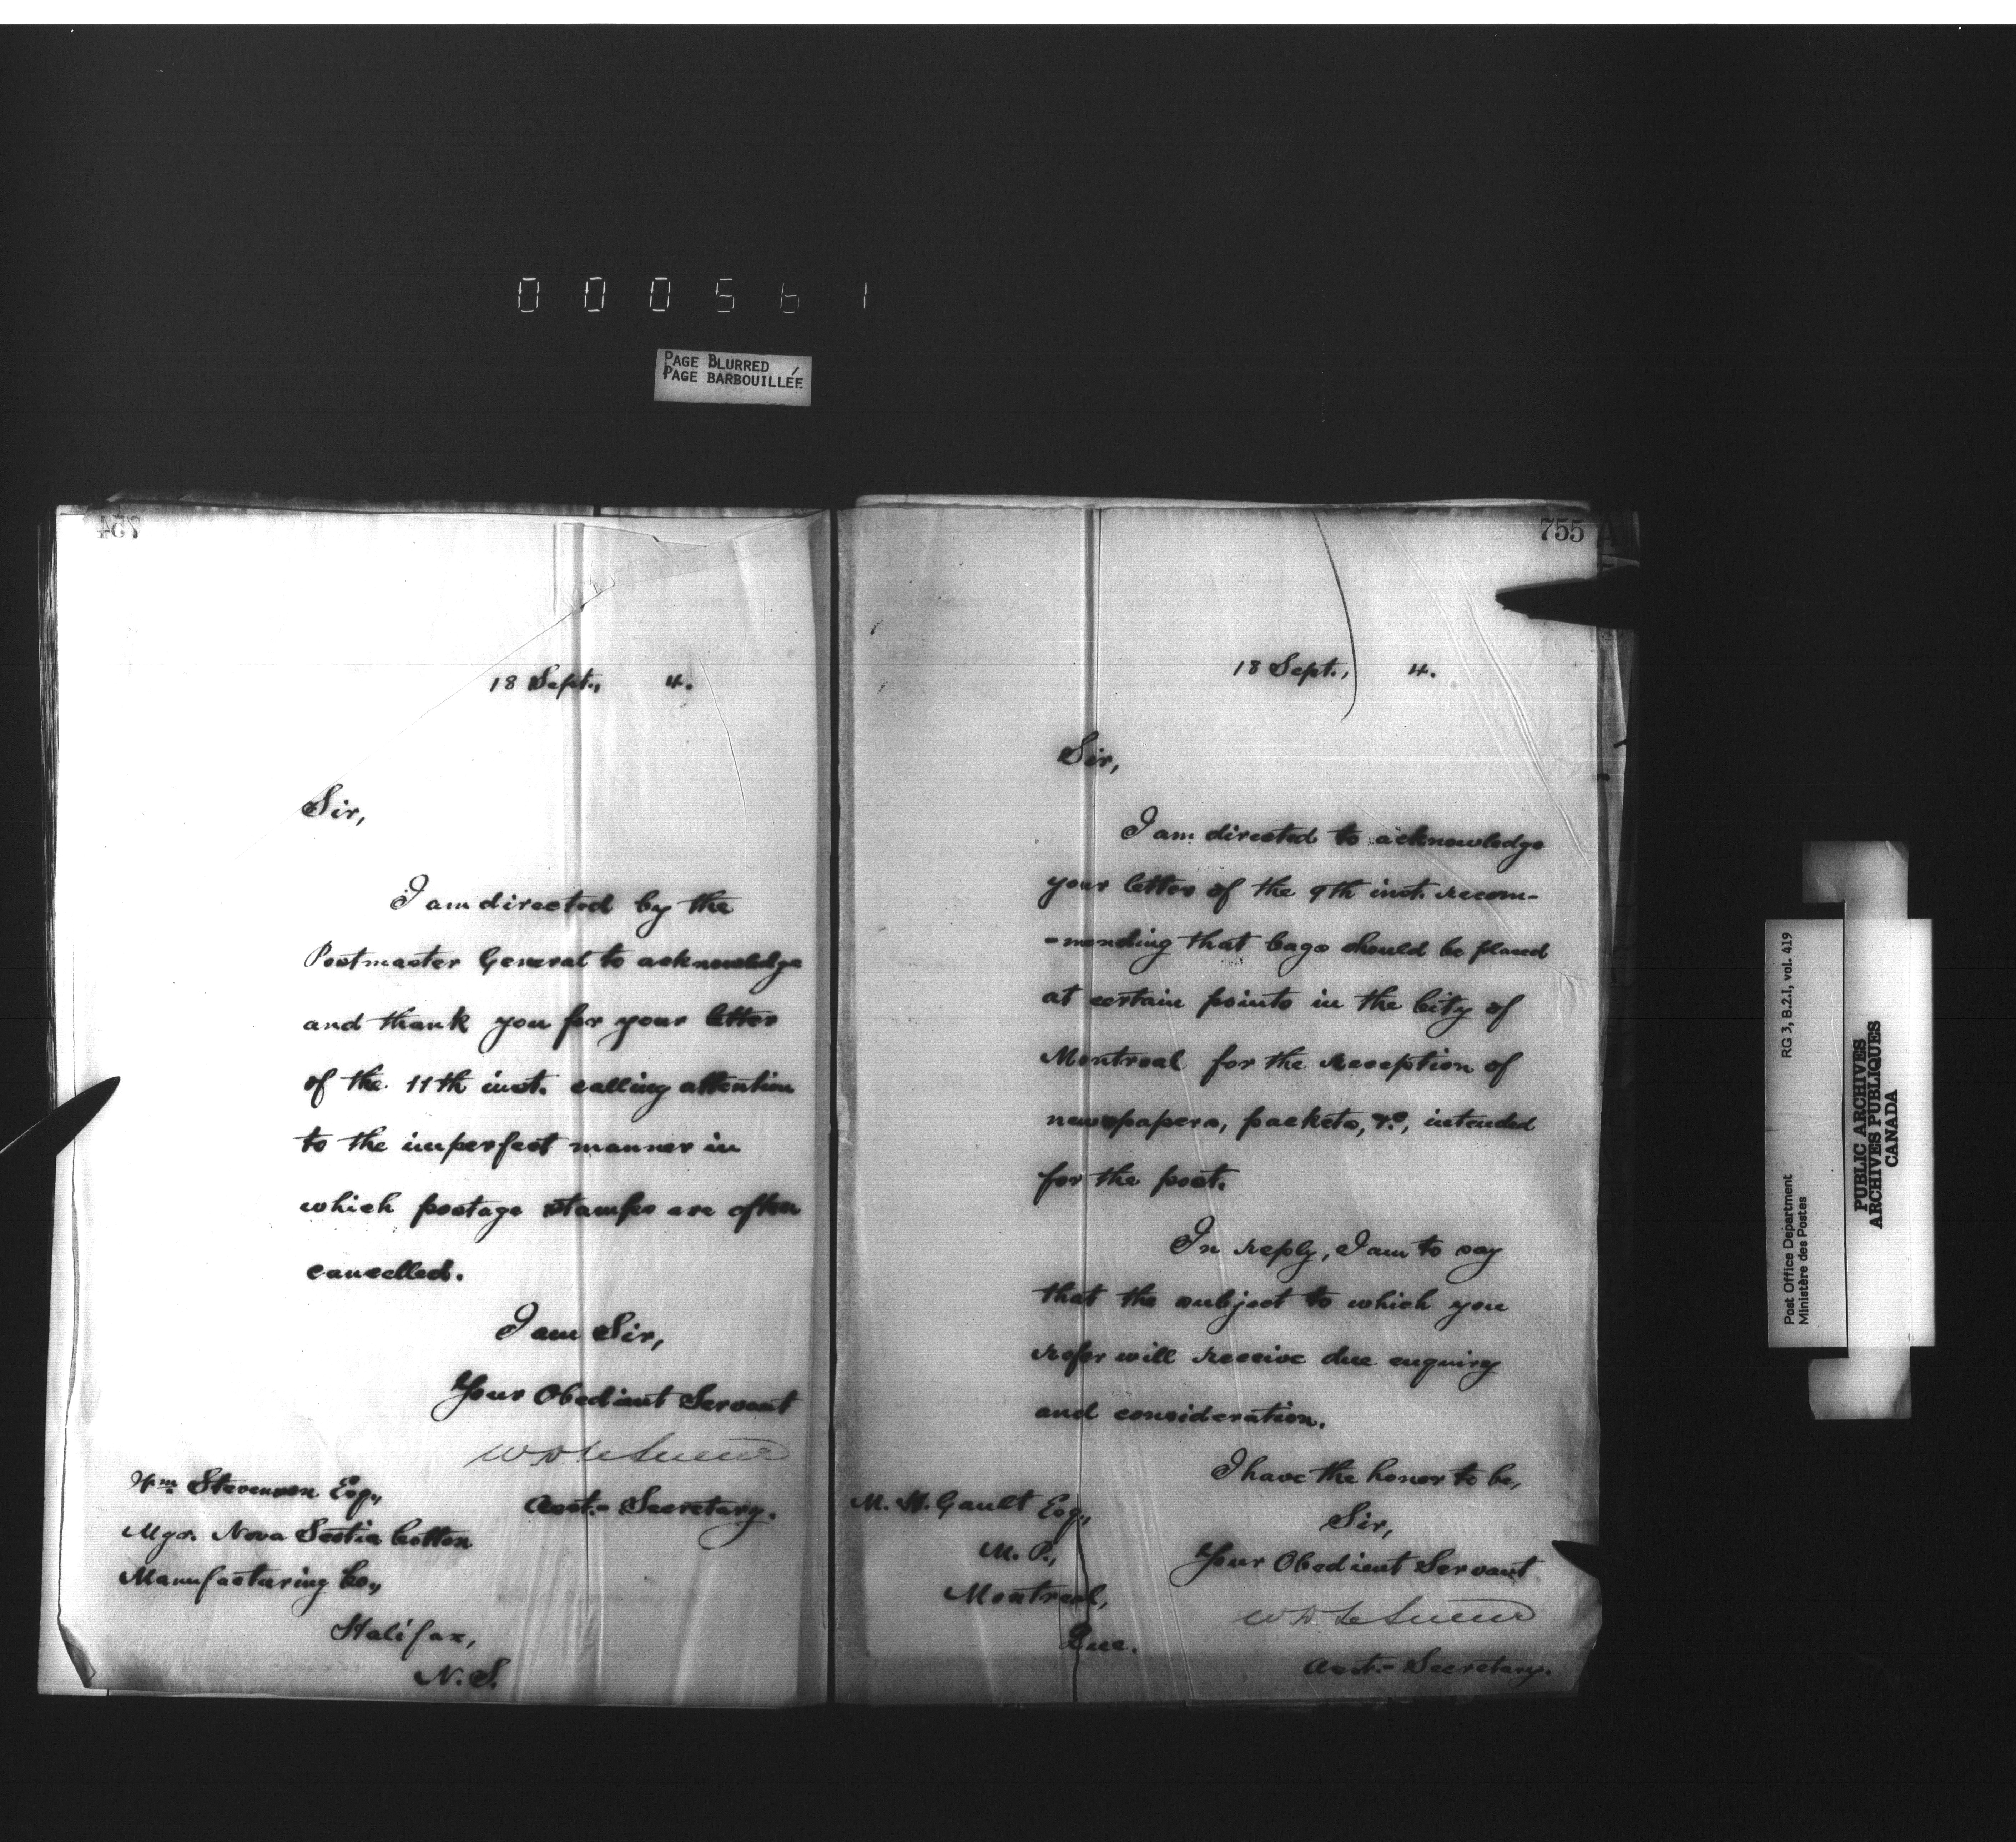 000561
PAGE BLURRED
PAGE BARBOUILLÉE
754
18 Sept., 4.
Sir,
I am directed by the
Postmaster General to acknowledge
and thank you for your letter
of the 11th inst. calling attention
to the imperfect manner in
which postage stamps are often
cancelled.
I am Sir,
Your Obedient Servant
W D LeSueur
Asst.- Secretary.
Wm Stevenson Esq.,
Mgr. Nova Scotia Cotton
Manufacturing Co.,
Halifax,
N.S.
755
18 Sept., 4.
Sir,
I am directed to acknowledge
your letter of the 9th inst. recom-
-mending that bags should be placed
at certain points in the City of
Montreal for the reception of
newspapers, packets, &c, intended
for the post.
In reply, I am to say
that the subject to which you
refer will receive due enquiry
and consideration.
I have the honor to be,
Sir,
Your Obedient Servant
W D LeSueur
Asst.- Secretary.
M. H. Gault Esq.,
M. P.,
Montreal,
Que.
Post Office Department
Ministère des Postes
RG 3, B.2.I, vol. 419
PUBLIC ARCHIVES
ARCHIVES PUBLIQUES
CANADA